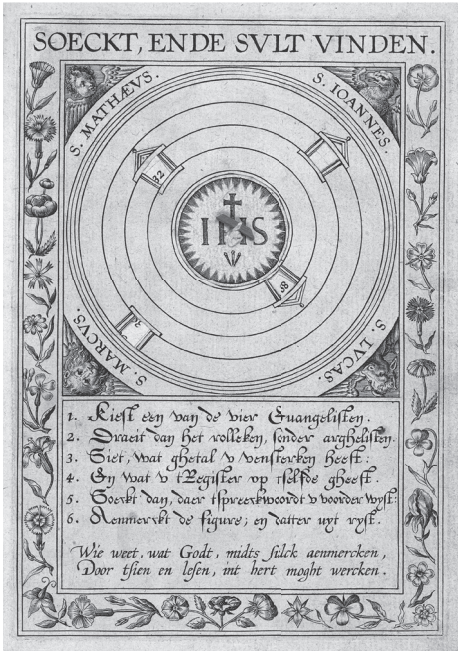 SOECKT, ENDE SVLT VINDEN.
S. MATHÆVS.
S. IOANNES.
32
IHS
38
S. MARCVS.
S. LVCAS.
1. Kiest een van de vier Euangelisten.
2. Draeit dan het rolleken, sonder arghelisten.
3. Siet, wat ghetal v vensterken heeft:
4. En wat v tRegister op tselfde gheeft.
5. Soeckt dan, daer tspreeckwoordt v voorder wyst:
6. Aenmerckt de figure; en datter uyt ryst.
Wie weet, wat Godt, midts sulck aenmercken,
Door tsien en lesen, int hert moght wercken.